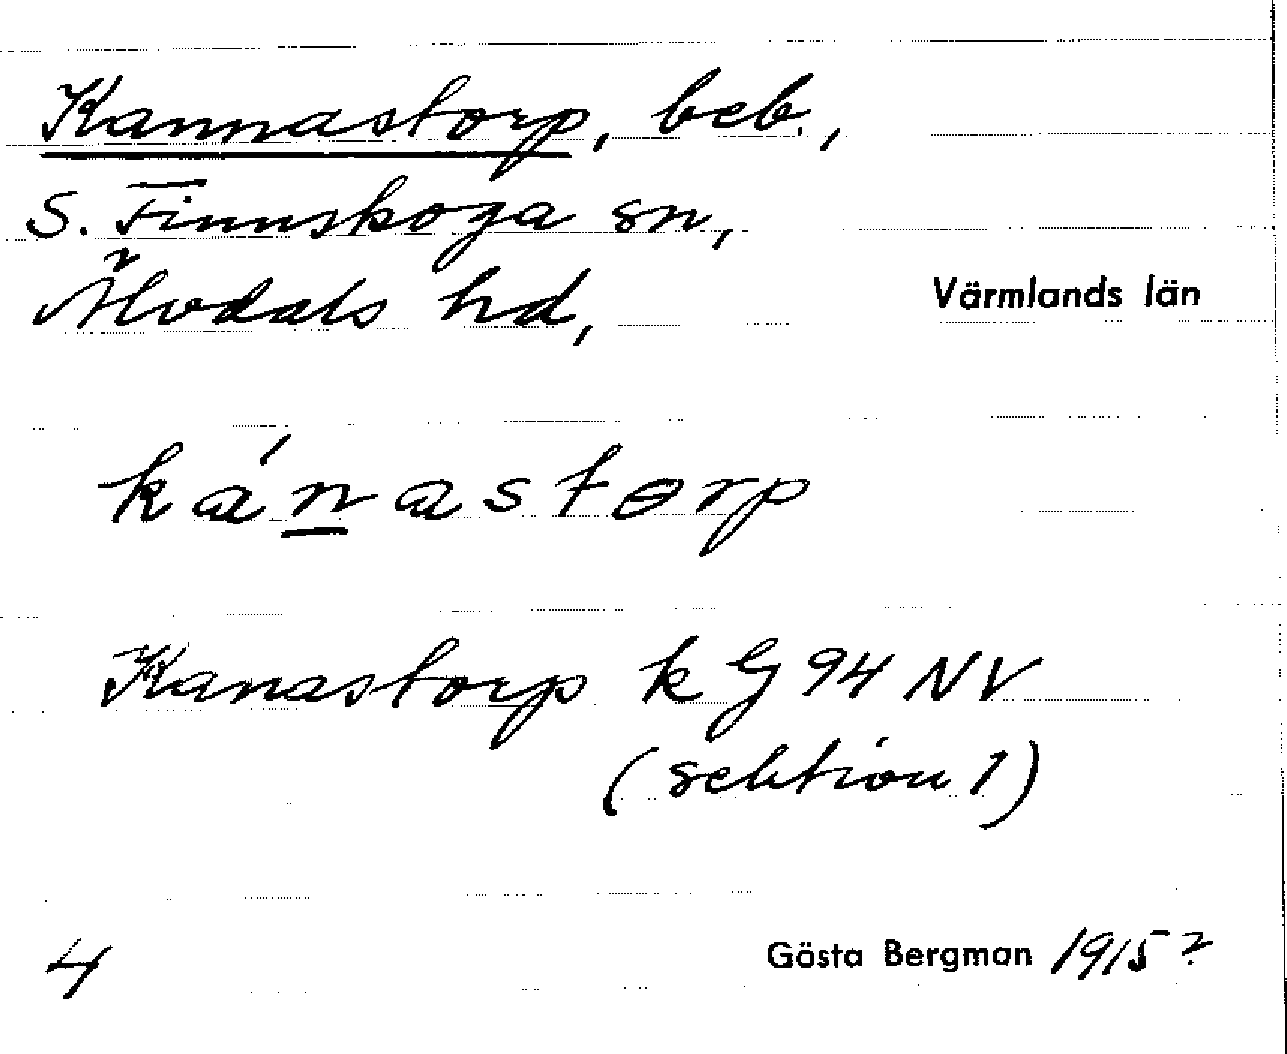 Kannastorp, beb.,
S. Finnskoga sn,
Älvdals hd, Värmlands län
kánastorp
Kanastorp k G 94 NV
(sektion 1)
4 Gösta Bergman 1915?